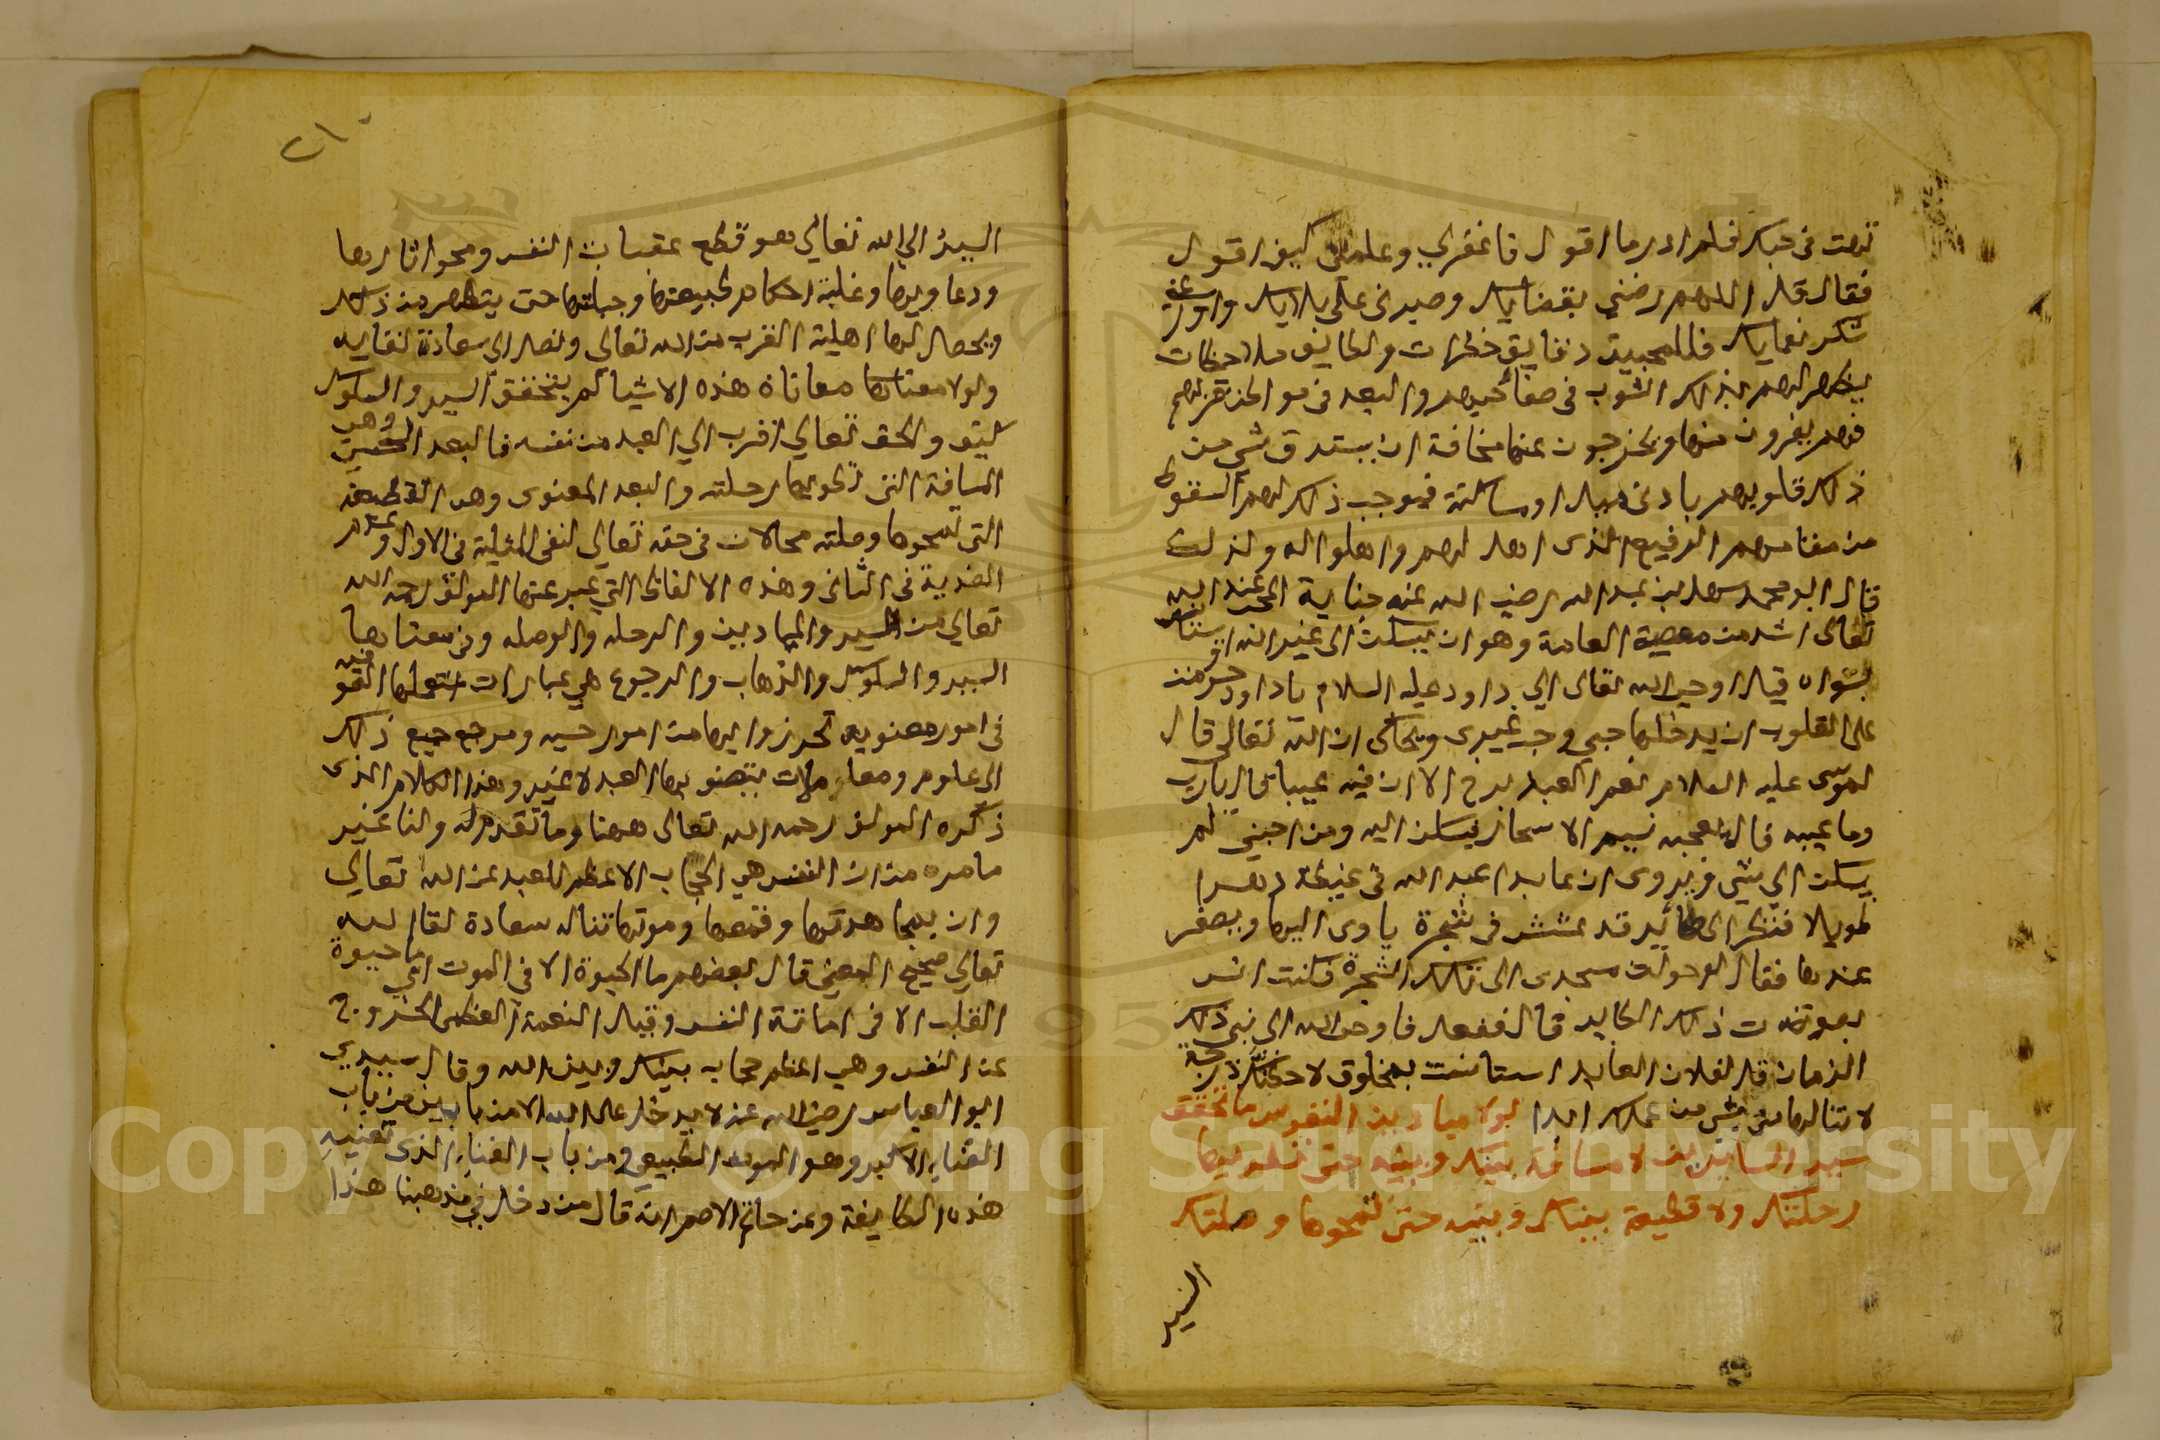 تهت في حبك فلم ادر ما اقول فاغفرلي وعلمني كيف اقول
فقال قل اللهم رضني بقضايك وصبرني على بلايك واوزعني
شكر نعمايك فللمحبين دقايق خطرات ولطايف ملاحظات
يظهر لهم بذلك الشوب في صفا حبهم والبعد في مواطن قربهم
فهم يفرون منها ويخرجون عنها مخافة ان يسترق شي من
ذلك قلوبهم بادنى ميل او مساكنة فيوجب ذلك لهم السقوط
من مقامهم الرفيع الذى اهل لهم واهلوا له ولذلك
قال ابو محمد سهل بن عبد الله رضي الله عنه جناية المحب عند الله
تعالى اشد من معصية العامة وهو ان يسكن الى غير الله او يستانس
بسواه قيل اوحى الله تعالى الى داود عليه السلام يا داود حرمت
على القلوب ان يدخلها حبي وحب غيرى ويحكى ان الله تعالى قال
لموسى عليه السلام نعم العبد برخ الا ان فيه عيبا قال يارب
وما عيبه قال يعجبه نسيم الاسحار فيسكن اليه ومن احبني لم
يسكن الى شي ويروى ان عابدا عبد الله في غيضة دهرا
طويلا فنظر الى طائر قد عشش في شجرة ياوى اليها ويصفر
عندها فقال لو حولت مسجدى الى تلك الشجرة فكنت انس
بصوت ذلك الطاير قال ففعل فاوحى الله الى نبي ذلك
الزمان قل لفلان العابد استانست بمخلوق لاحطنك درجة
لا تنالها بشي من عملك ابدا لولا ميادين النفوس ما تحقق
سير السايرين لا مسافة بينك وبينه حتى تطويها
رحلتك ولا قطيعة بينك وبينه حتى تمحوها وصلتك
السير
٢١٠
السير الى الله تعالى هو قطع عقبات النفس ومحو اثارها
ودعاويها وغلبة احكام طبيعتها وجبلتها حتى يتطهر من ذلك
ويحصل لها اهلية القرب من الله تعالى وتصل الى سعادة لقايه
ولولا معناها معاناة هذه الاشيا لم يتحقق السير والسلوك
كيف والحق تعالى اقرب الى العبد من نفسه فالبعد الحسي وهي
المسافة التي تطويها رحلته والبعد المعنوى وهو القطيعة
التي تمحوها وصلته محالان في حقه تعالى لنفي المثلية في الاول وعدم
الضدية في الثاني وهذه الالفاظ التي عبر عنها المولف رحمه الله
تعالى من السير والميادين والرحله والوصله وفي معناها
السير والسلوك والذهاب والرجوع هي عبارات استعملها القوم
في امور معنويه تجوزوا اليها من امور حسيه ومرجع جميع ذلك
الى علوم ومعاملات يتصف بها العبد لا غير وهذا الكلام الذى
ذكره المولف رحمه الله تعالى ههنا وما تقدم له ولنا غير
ما مره من ان النفس هي الحجاب الاعظم للعبد عن الله تعالى
وان بمجاهدتها وقمعها وموتها تنال سعادة لقا الله
تعالى صحيح المعنى قال بعضهم ما الحيوة الا في الموت اي ما حيوة
القلب الا في اماتة النفس وقيل النعمة العظمى الخروج
عن النفس وهي اعظم حجاب بينك وبين الله وقال سيدي
ابو العباس رضي الله عنه لا يدخل على الله الا من بابين من باب
الفناء الاكبر وهو الموت الطبيعي ومن باب الفناء الذى تعنيه
هذه الطايفة وعن حاتم الاصم انه قال من دخل في مذهبنا هذا
Copyright © King Saud University